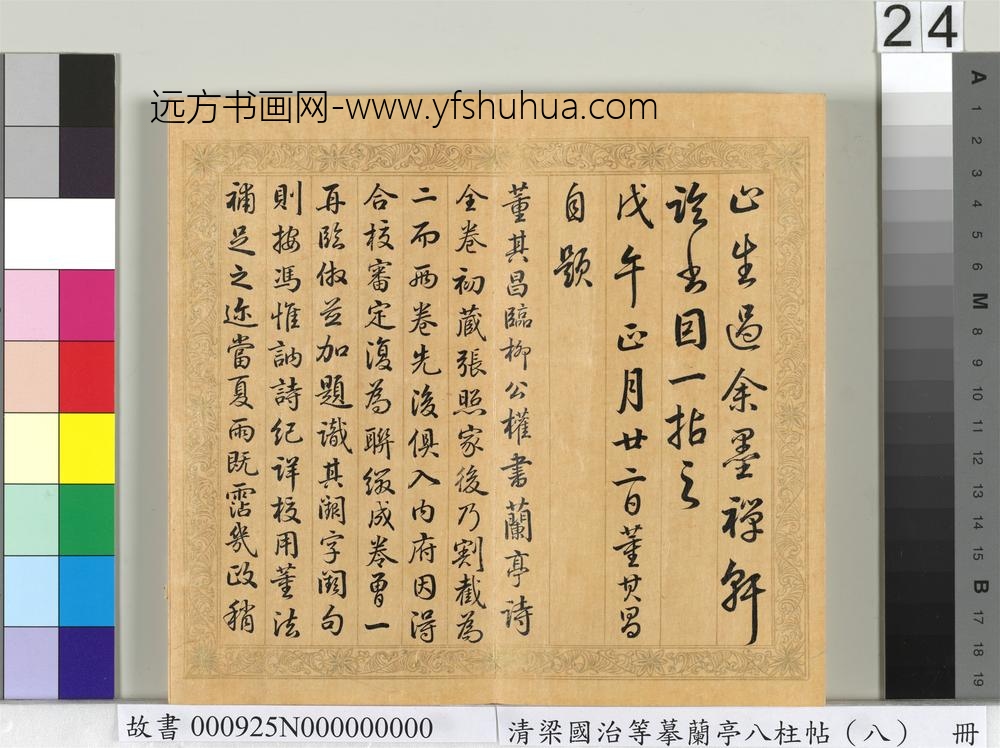 24
远方书画网-www.yfshuhua.com
止生過余墨禪軒
論書因一拈之
戊午正月廿二日董其昌
自題
董其昌臨柳公權書蘭亭詩
全卷初藏張照家後乃割截為
二而兩卷先後俱入內府因得
合校審定復為聯綴成卷曾一
再臨倣並加題識其闕字闕句
則按馮惟訥詩紀詳校用董法
補足之迩當夏雨既霑幾政稍
A 1 2 3 4 5 6 M 8 9 10 11 12 13 14 15 B 17 18 19
故書 000925N000000000
清梁國治等摹蘭亭八柱帖（八） 冊